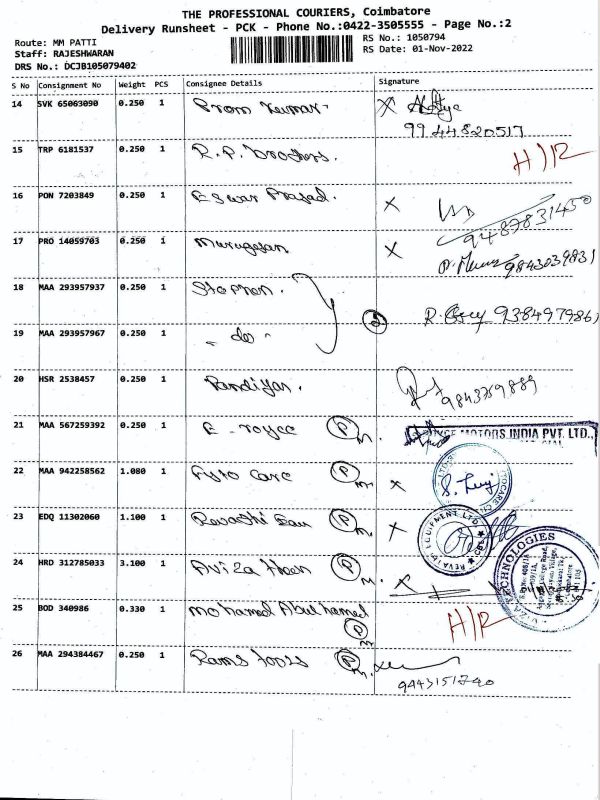 THE PROFESSIONAL COURIERS, Coimbatore
Delivery Runsheet - PCK - Phone No.:0422-3505555 - Page No.:2
Route: MM PATTI
RS No.: 1050794
Staff: RAJESHWARAN
RS Date: 01-Nov-2022
DRS No.: DCJB105079402
S No Consignment No Weight PCS Consignee Details Signature
14 SVK 65063090 0.250 1 Prem Kumar
9944820517
15 TRP 6181537 0.250 1 R.P. brothers. H/R
16 PON 7203849 0.250 1 Eswar Prasad. X
9487831450
17 PRO 14059703 0.250 1 Murugesan X
9843039831
18 MAA 293957937 0.250 1 Stephen.
2 938497986
19 MAA 293957967 0.250 1 - do -
20 HSR 2538457 0.250 1 Pandiyan.
9843759889
21 MAA 567259392 0.250 1 E-royce P
MOTORS INDIA PVT. LTD.,
22 MAA 942258562 1.080 1 Fyto Care P X
23 EDQ 11302060 1.100 1 P X
EQUIPMENT LTD
24 HRD 312785033 3.100 1 P X
TECHNOLOGIES
25 BOD 340986 0.330 1 Mohamed Abul hamed
P H/R
26 MAA 294384467 0.250 1 Rams tools P
9443151740